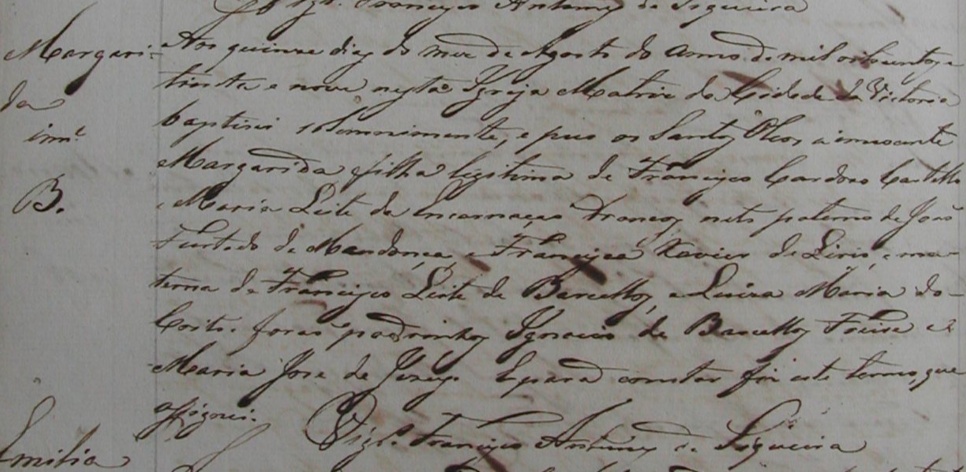 Vigr.º Francisco Antunes de Siqueira
Margari- Aos quinse dias do mez de Agosto do anno de mil oitocentos, e
da trinta e nove nesta Igreja Matriz da Cidade da Victoria
inn.te baptisei solemnimente, e pus os Santos Oleos, a innocente
Margarida filha legitima de Francisco Cardoso Castello
B. e Maria Leite da Encarnação brancos, neta paterna de João
Furtado de Mendonça, e Francisca Xavier de Lirio, e ma-
terna de Francisco Leite de Barcellos, e Luiza Maria do
Coito. forão padrinhos Ignacio de Barcellos Freire e
Maria Jose de Jesus E para constar fiz este termo, que
assignei.
Vigr.º Francisco Antunes de Siqueira
Emilia